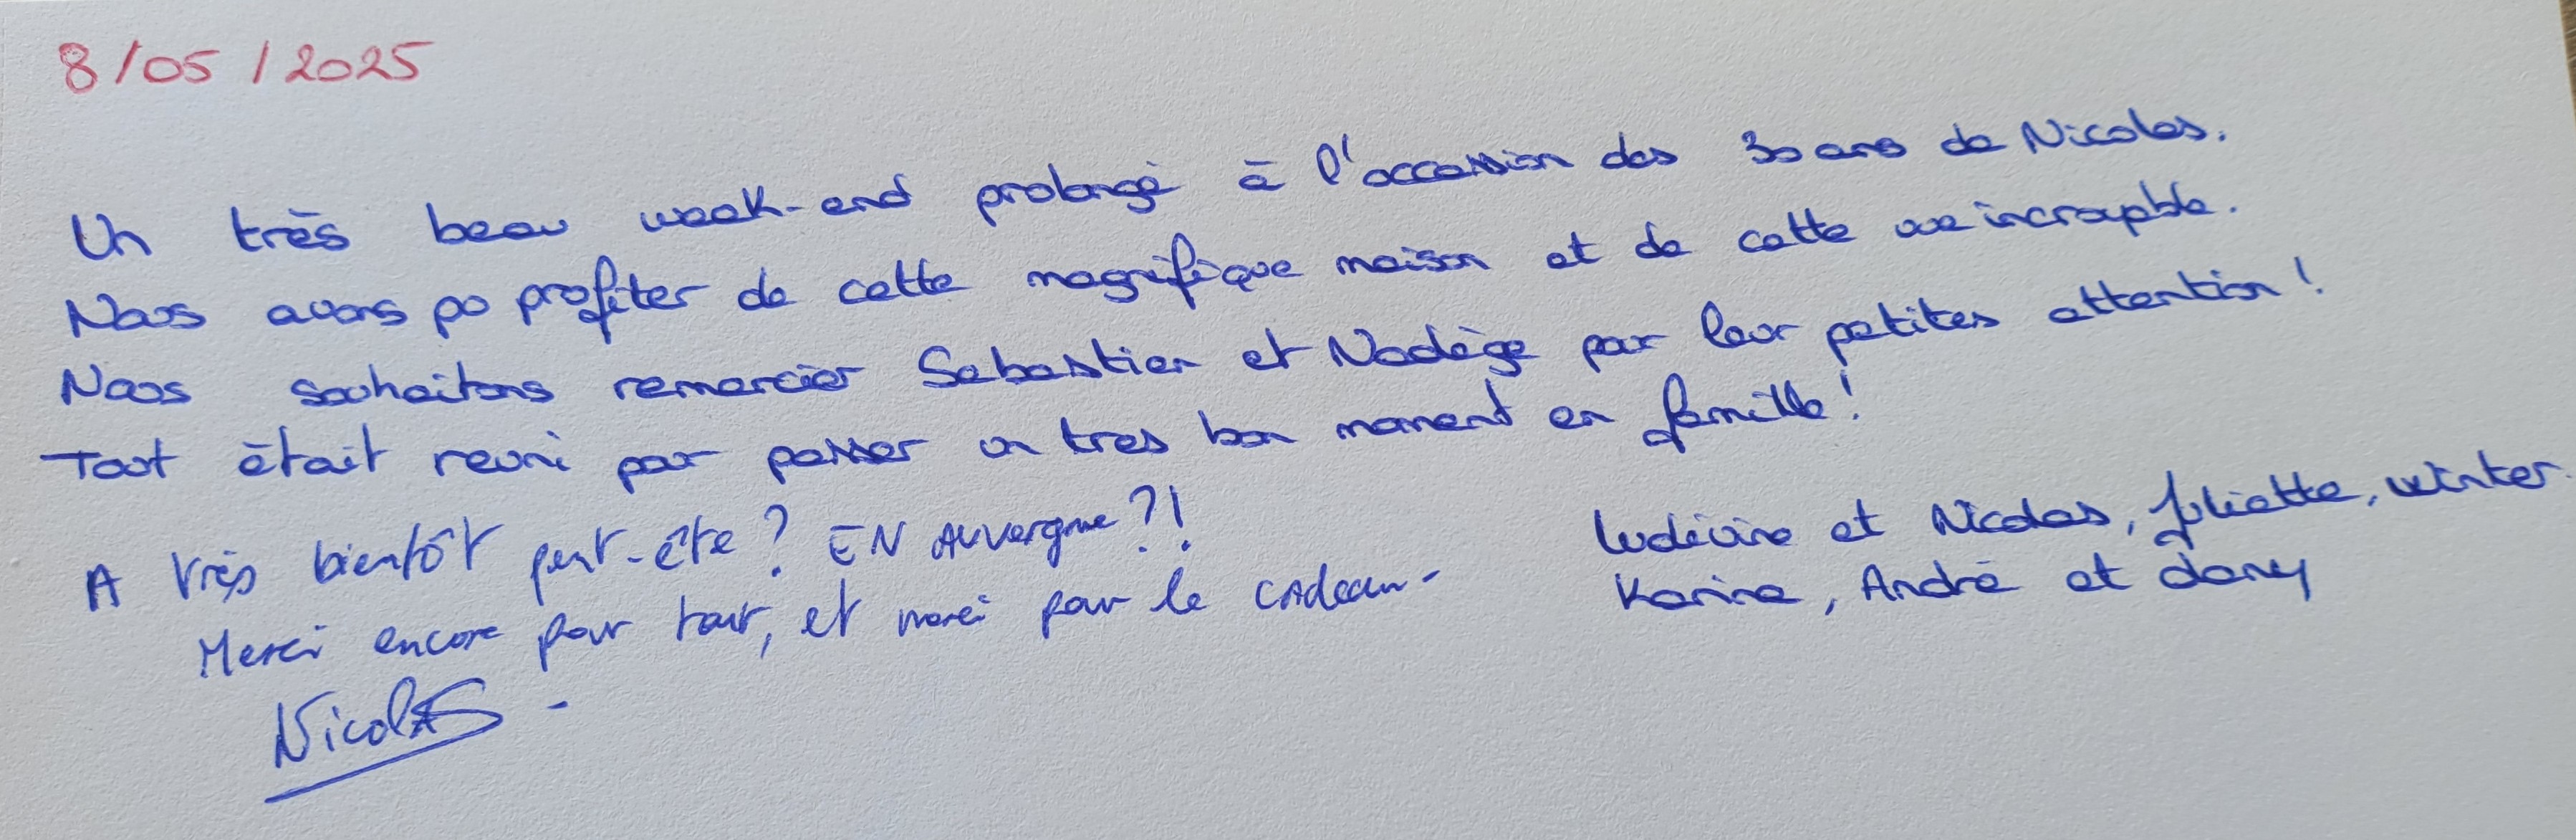 8/05/2025
Un très beau week-end prolongé à l'occassion des 30 ans de Nicolas.
Nous avons pu profiter de cette magnifique maison et de cette vue incroyable.
Nous souhaitons remercier Sebastien et Nadège par leur petites attention !
Tout était reuni pour passer un tres bon moment en famille !
A très bientôt peut-être ? EN Auvergne ?!
Merci encore pour tout, et merci pour le cadeau-
Nicolas -
Ludivine et Nicolas, Juliette, Winter.
Karine, André et Dany